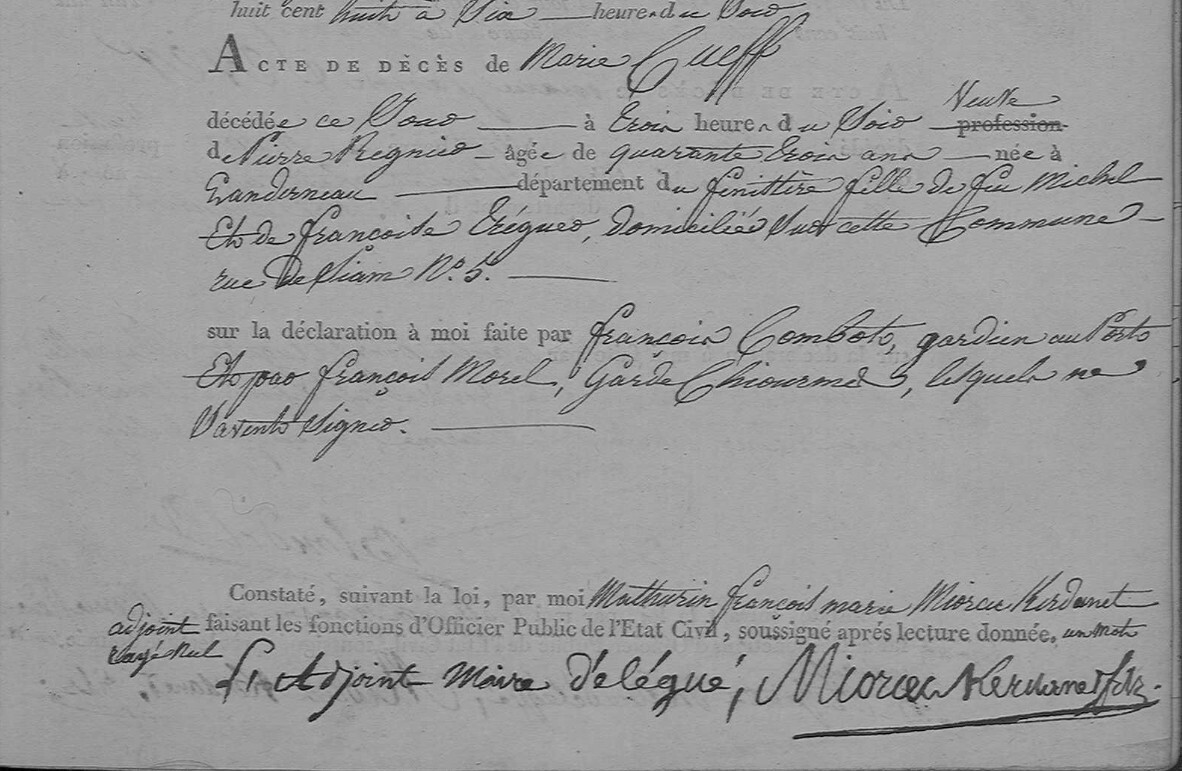 huit cent huit à Six heures du Soir
ACTE DE DÉCÈS de Marie Cueff
Veuve
décédée ce Jour à trois heures du Soir profession
de Pierre Régnier âgée de quarante trois ans née à
Landerneau département du finittère fille de feu Michel
Et de françoise Tréguer, domiciliée Sur cette Commune
rue de Siam N.º 5.
sur la déclaration à moi faite par françois Combot, gardien au Port
Et par françois Morel, Garde Chiourme, lesquels ne
Savent Signer.
Constaté, suivant la loi, par moi Mathurin françois marie Miorcec Kerdanet
adjoint faisant les fonctions d'Officier Public de l'Etat Civil, soussigné aprés lecture donnée, un mot
rayé Nul
L'Adjoint Maire délégué, Miorcec Kerdanet